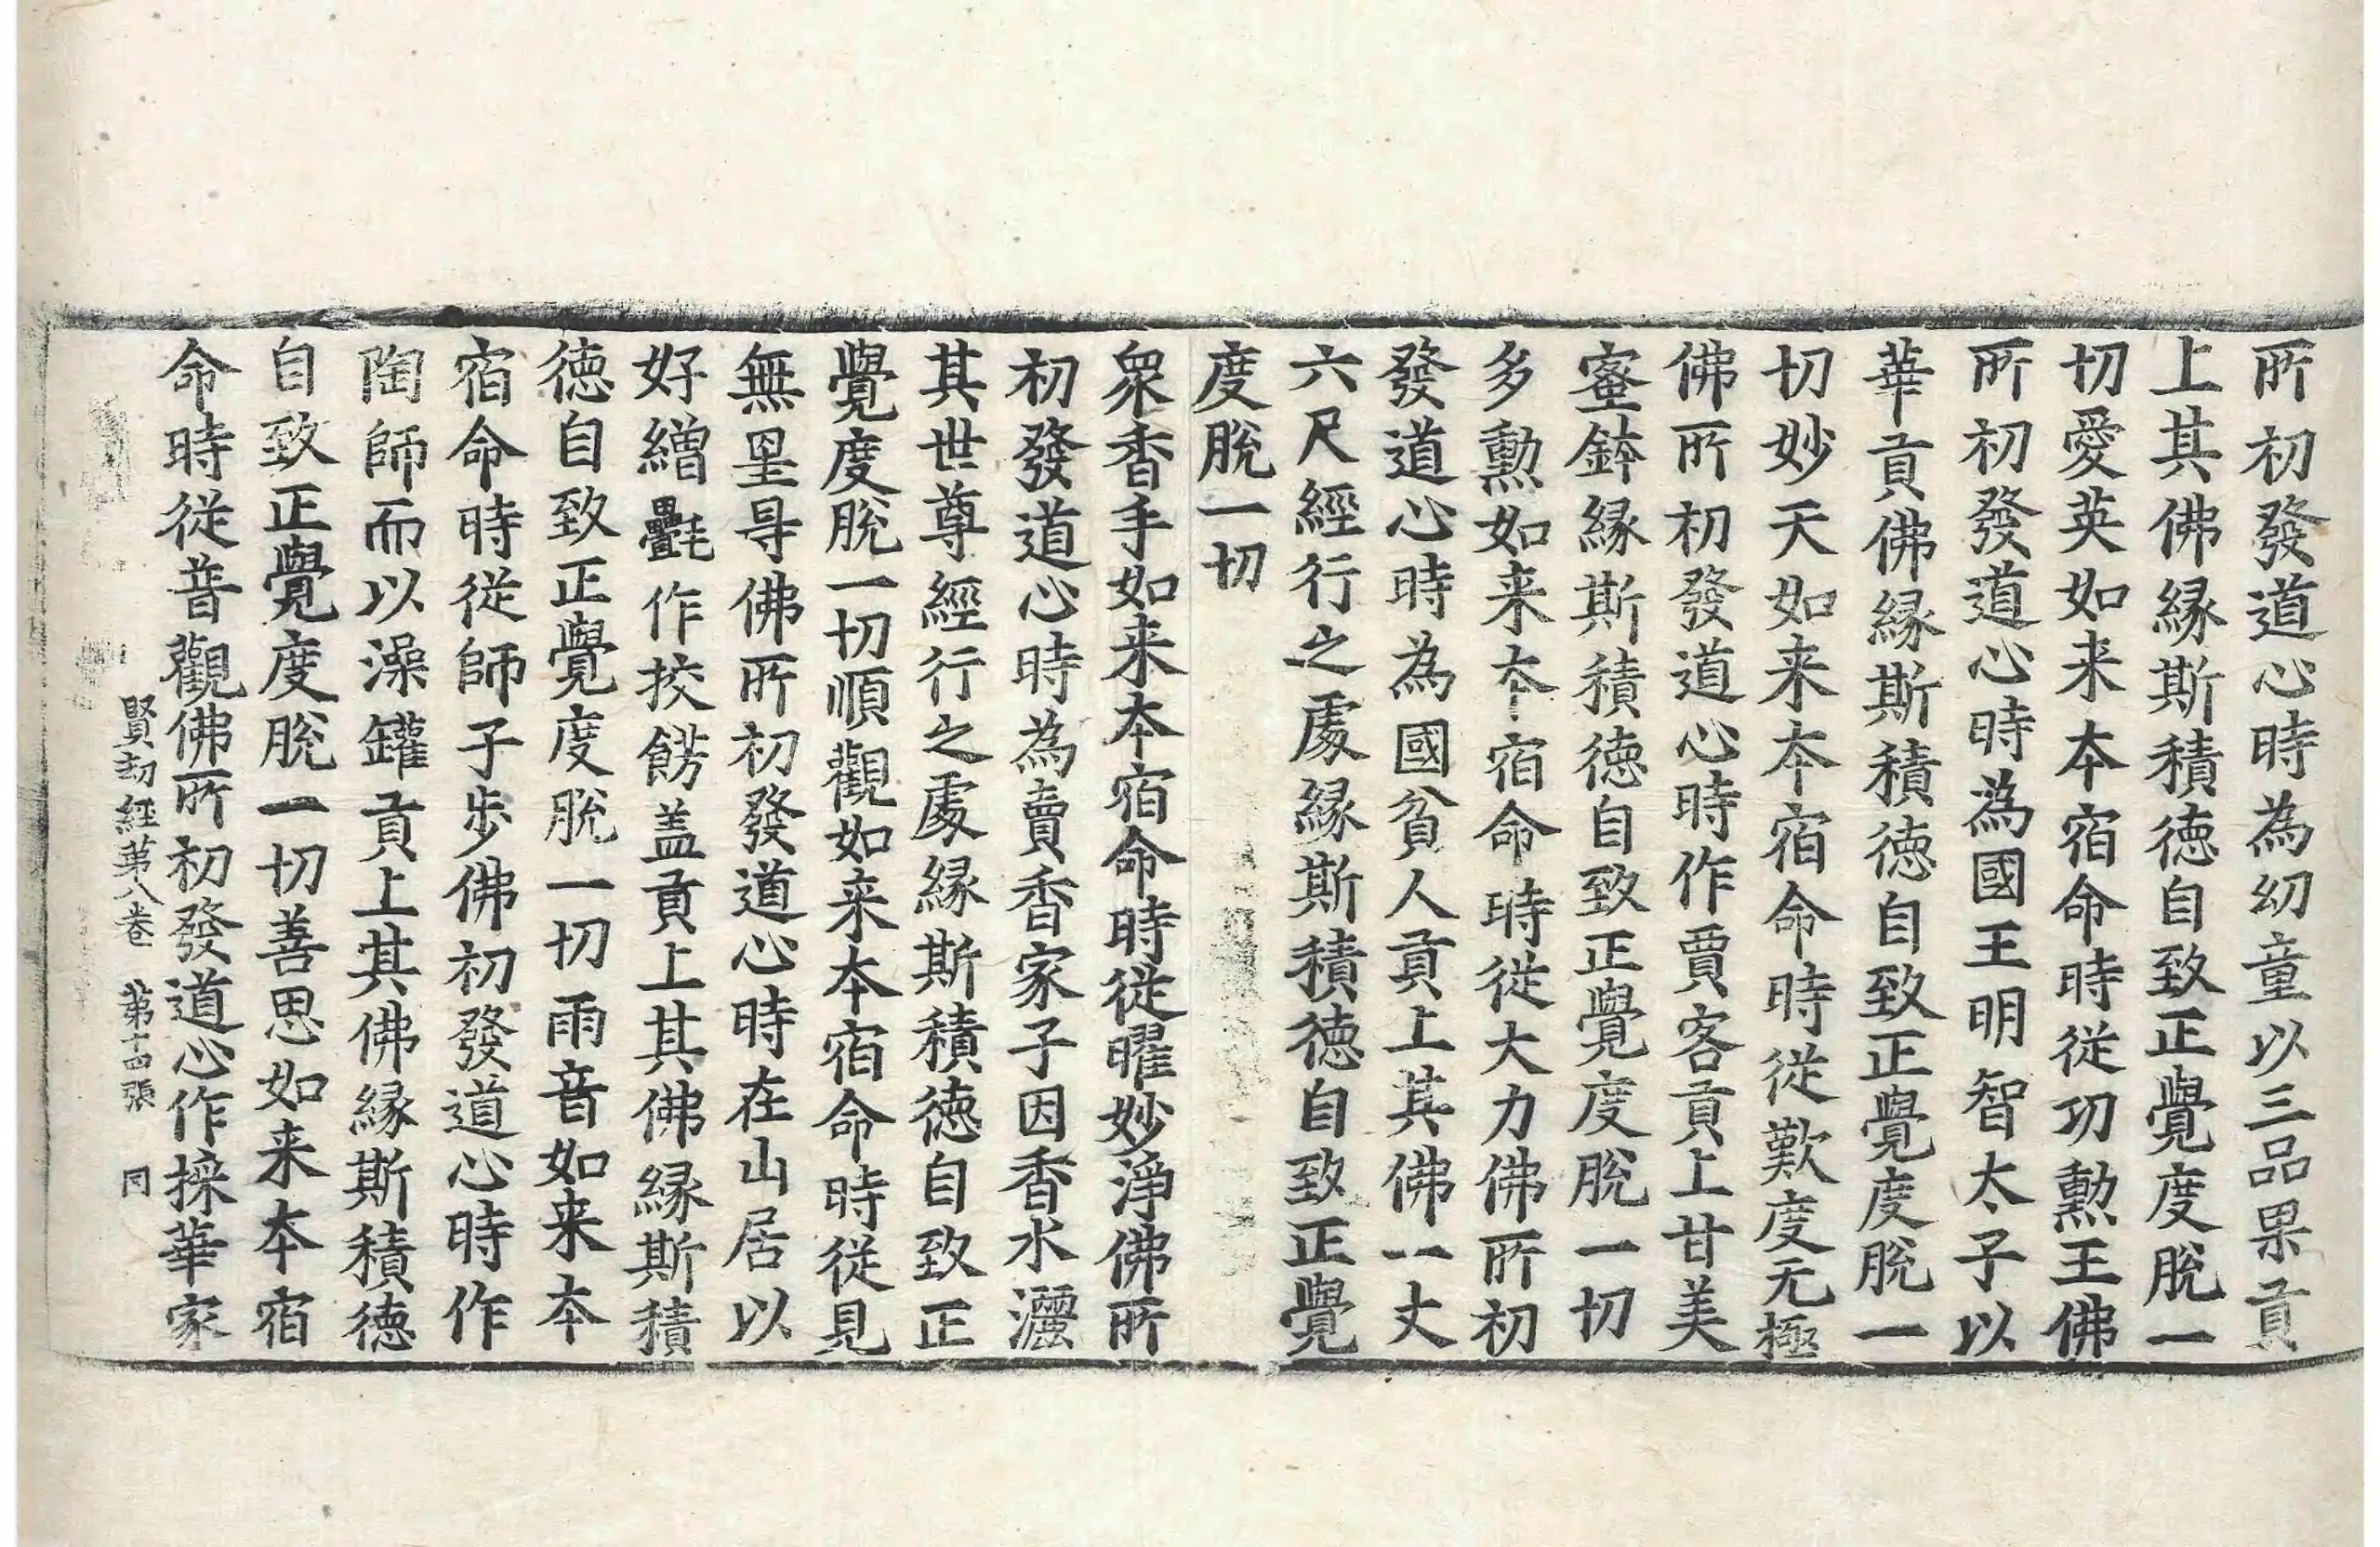 所初發道心時為幼童以三品果貢
上其佛縁斯積徳自致正覺度脫一
切愛英如来本宿命時從功勳王佛
所初發道心時為國王明智太子以
華貢佛縁斯積徳自致正覺度脫一
切妙天如来本宿命時從歎度无極
佛所初發道心時作賈客貢上甘美
蜜鉢縁斯積徳自致正覺度脫一切
多勳如来本宿命時從大力佛所初
發道心時為國貧人貢上其佛一丈
六尺經行之處縁斯積徳自致正覺
度脫一切
衆香手如来本宿命時從曜妙淨佛所
初發道心時為賣香家子因香水灑
其世尊經行之處縁斯積徳自致正
覺度脫一切順觀如来本宿命時從見
無㝵佛所初發道心時在山居以
好繒㲲作挍餝盖貢上其佛縁斯積
徳自致正覺度脫一切雨音如来本
宿命時從師子步佛初發道心時作
陶師而以澡罐貢上其佛縁斯積徳
自致正覺度脫一切善思如来本宿
命時從音觀佛所初發道心作採華家
賢劫經第八卷 第十四張 同